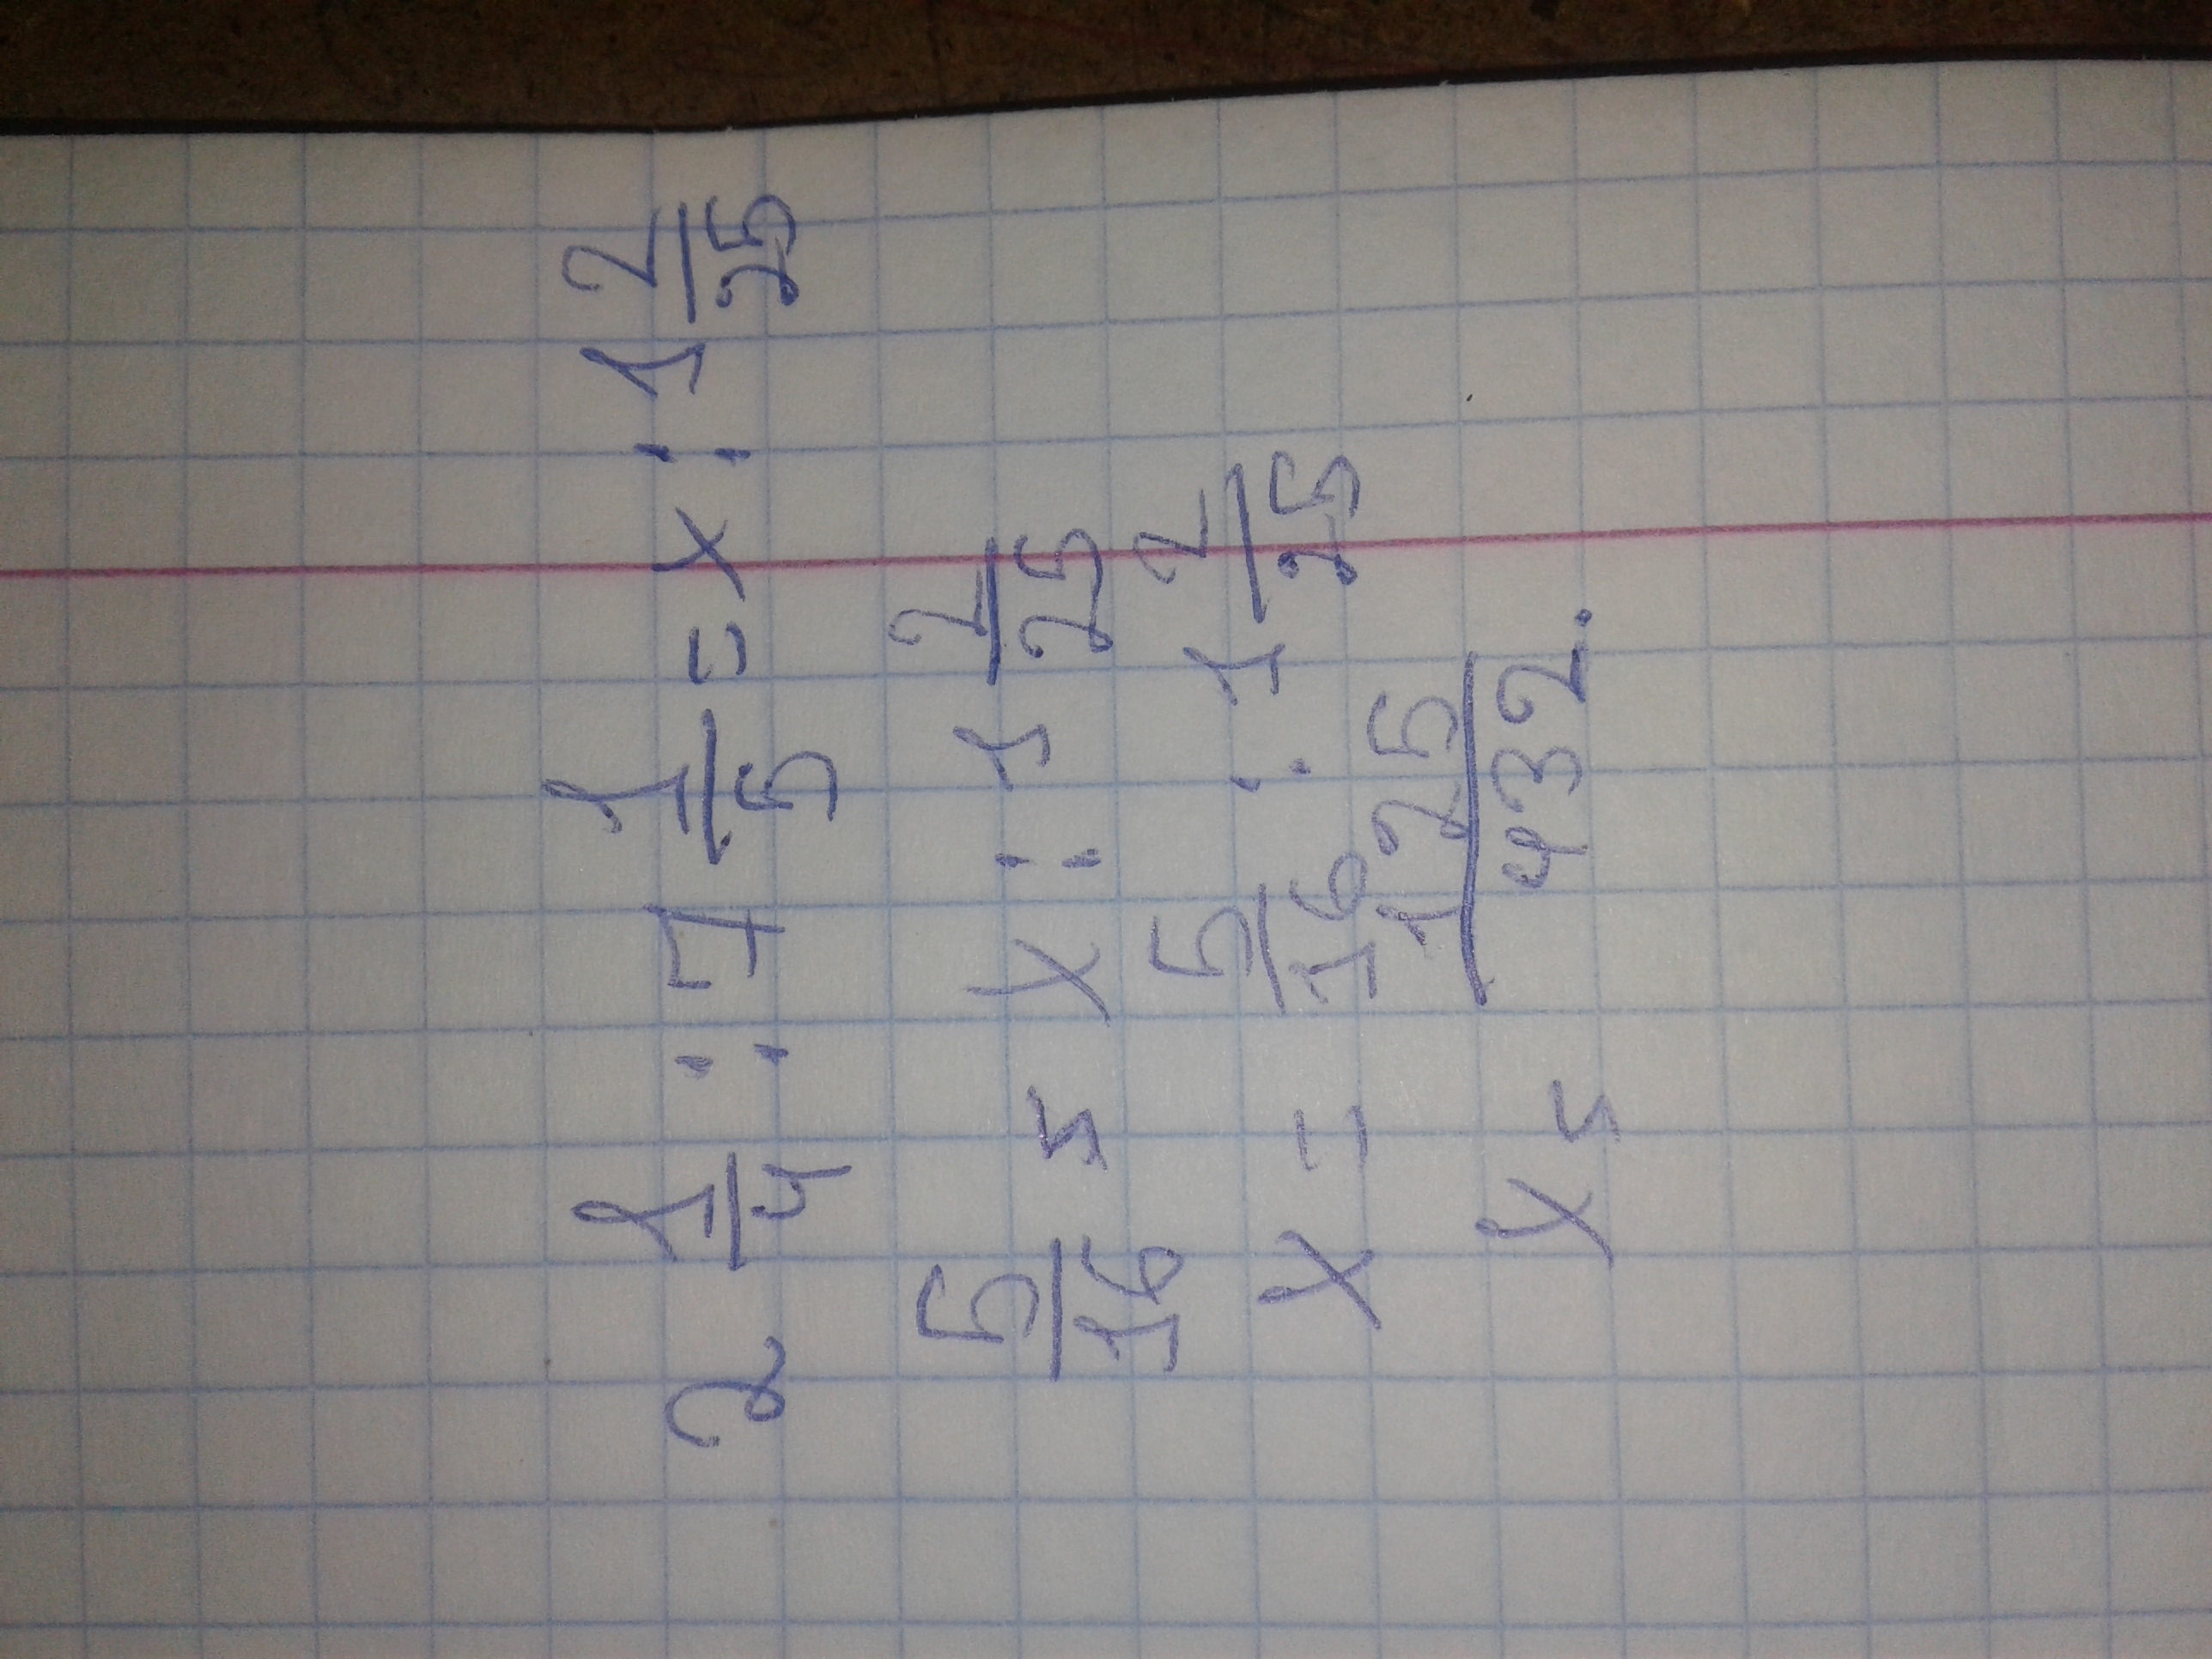 2 1/4 : 7 1/5 = x : 1 2/25
5/16 = x : 1 2/25
x = 5/16 : 1 2/25
x = 125/432.